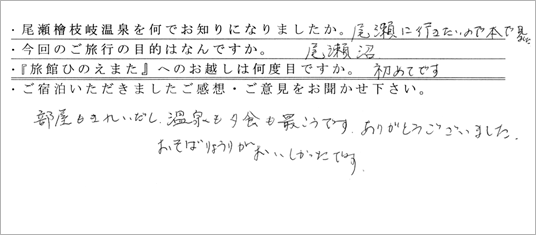 ・尾瀬檜枝岐温泉を何でお知りになりましたか。尾瀬に行きたいので本で見
・今回のご旅行の目的はなんですか。 尾瀬沼
・『旅館ひのえまた』へのお越しは何度目ですか。 初めてです
・ご宿泊いただきましたご感想・ご意見をお聞かせ下さい。
部屋もきれいだし、温泉も夕食も最こうです。ありがとうございました。
おそばりょうりがおいしかったです。